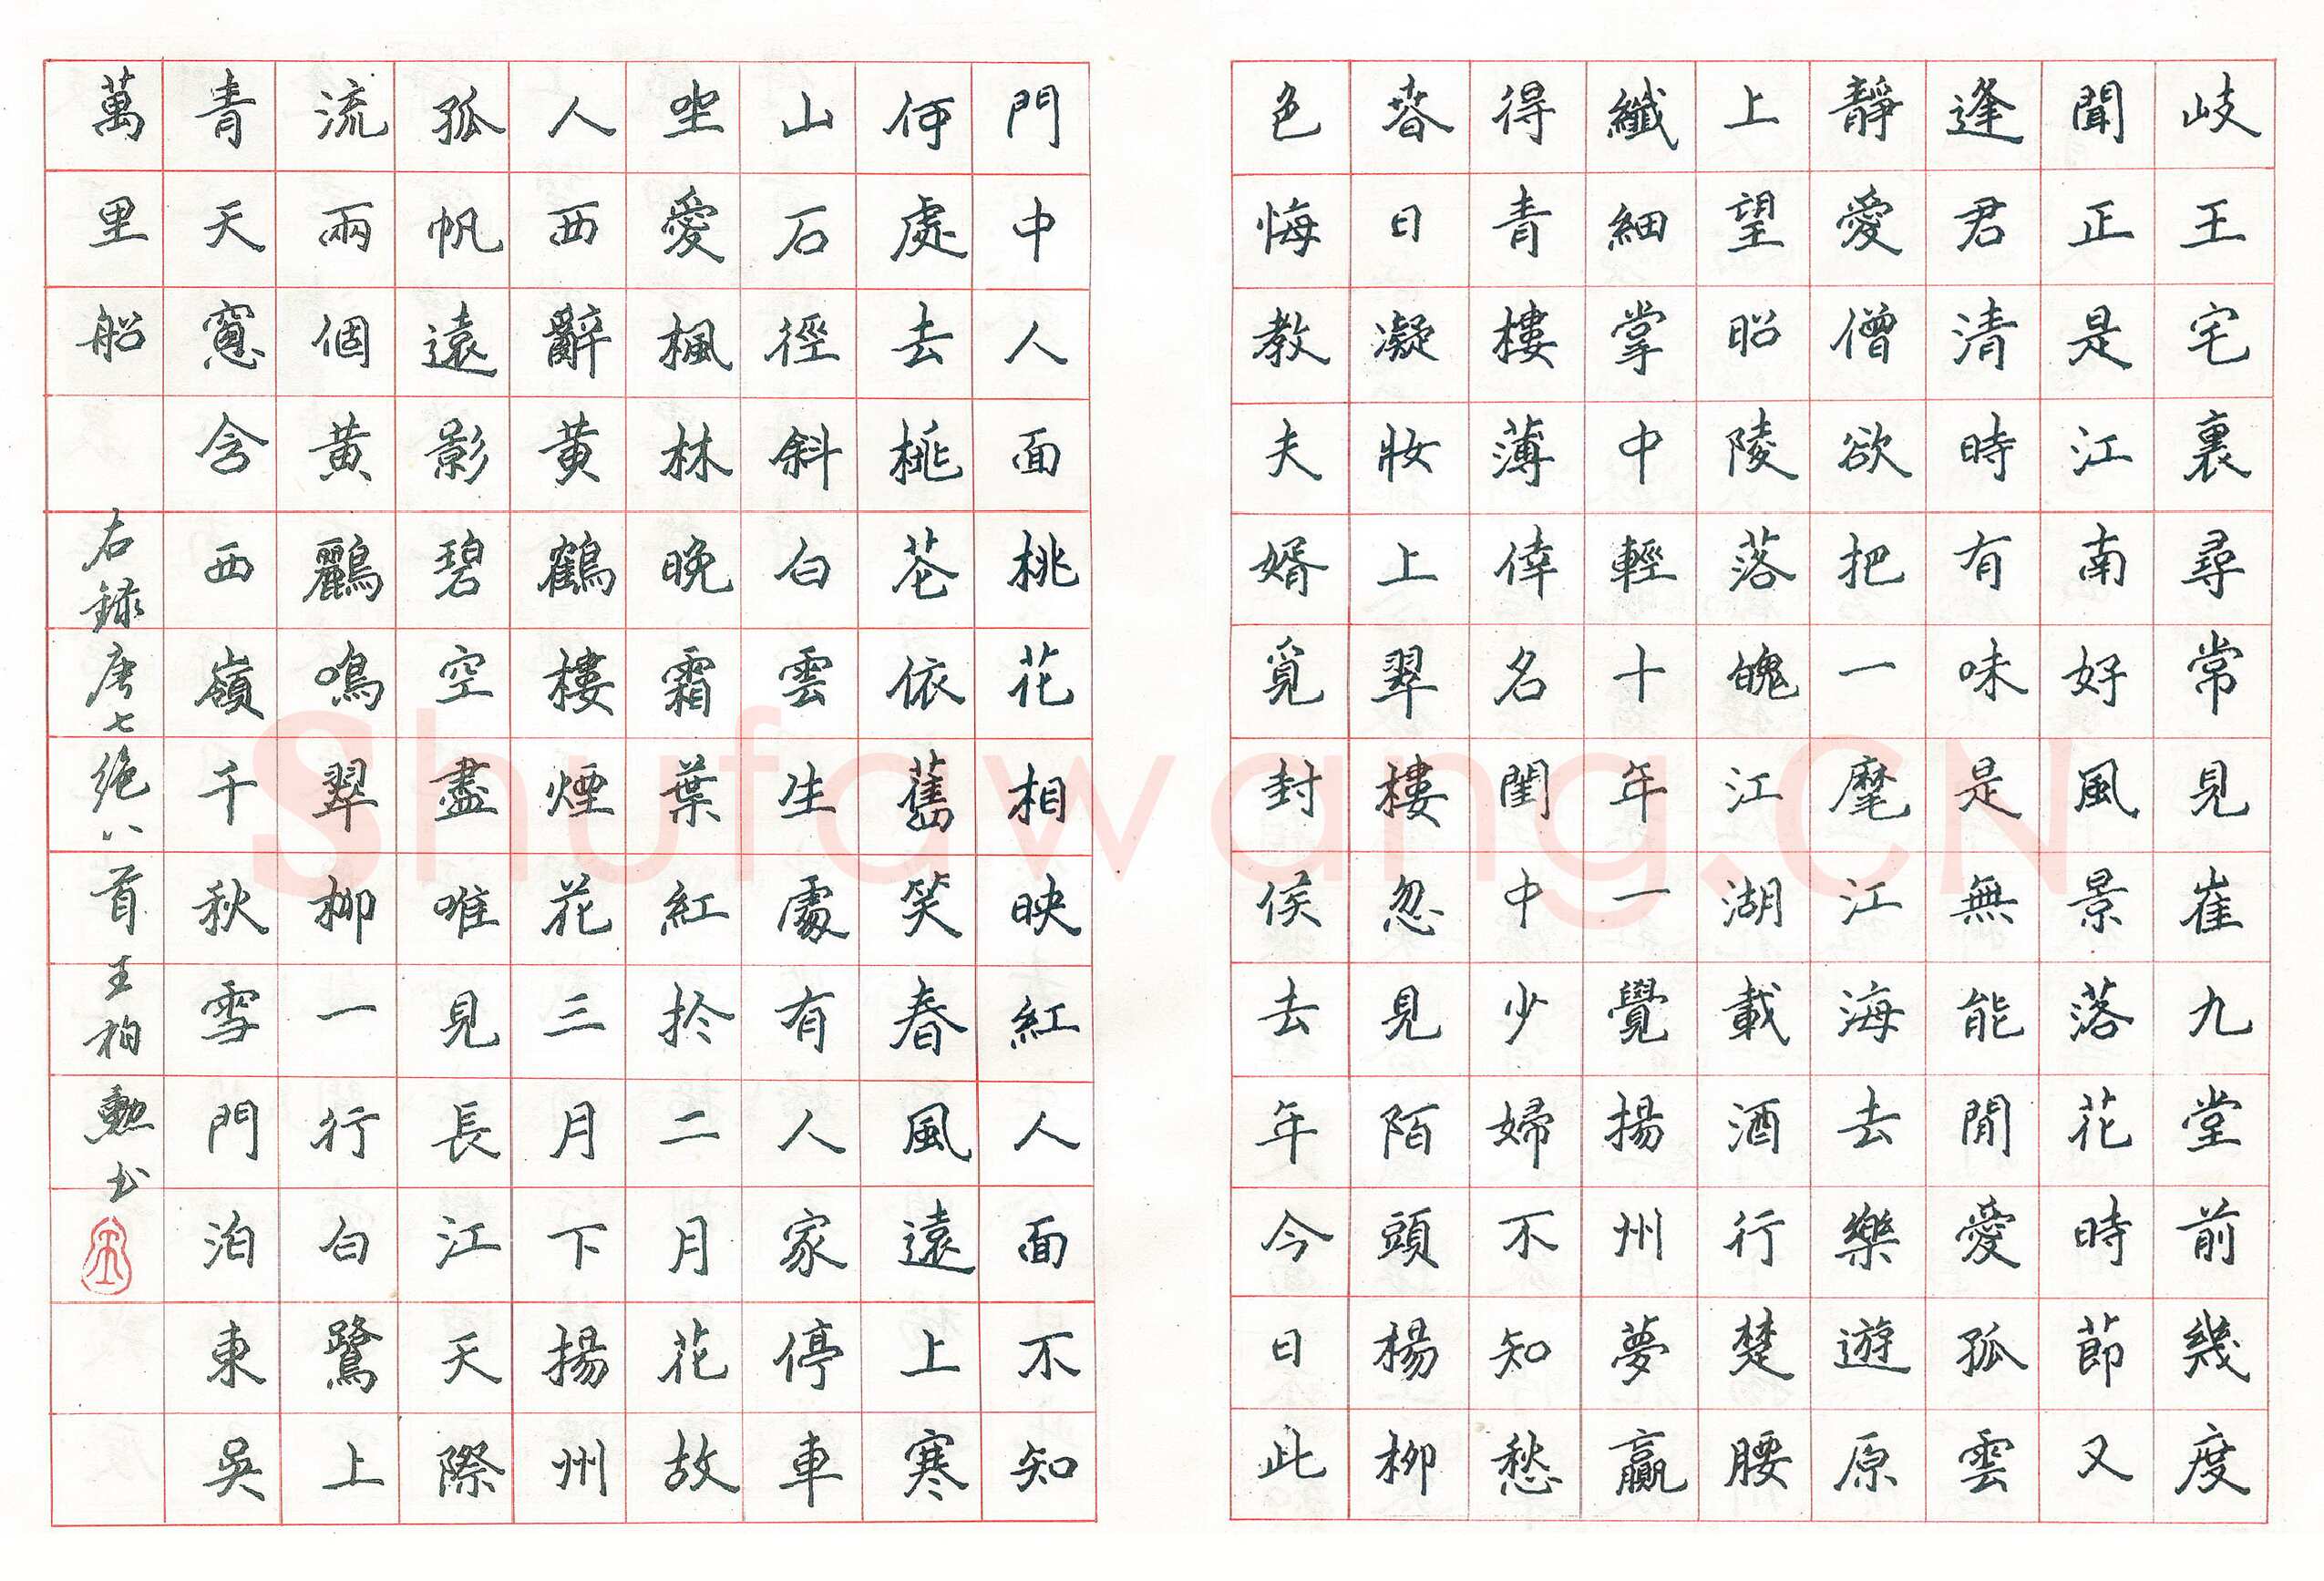 岐王宅裏尋常見崔九堂前幾度
聞正是江南好風景落花時節又
逢君清時有味是無能閒愛孤雲
靜愛僧欲把一麾江海去樂遊原
上望昭陵落魄江湖載酒行楚腰
纖細掌中輕十年一覺揚州夢贏
得青樓薄倖名閨中少婦不知愁
春日凝妝上翠樓忽見陌頭楊柳
色悔教夫婿覓封侯去年今日此
門中人面桃花相映紅人面不知
何處去桃花依舊笑春風遠上寒
山石徑斜白雲生處有人家停車
坐愛楓林晚霜葉紅於二月花故
人西辭黃鶴樓煙花三月下揚州
孤帆遠影碧空盡唯見長江天際
流兩個黃鸝鳴翠柳一行白鷺上
青天窓含西嶺千秋雪門泊東吳
萬里船
右錄唐七絕八首王柏勳书
Shufawang.CN